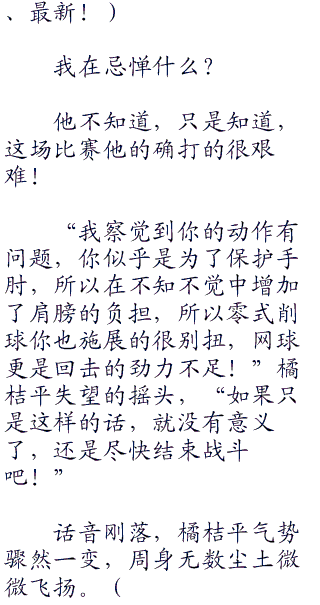 、最新！）
我在忌惮什么？
他不知道，只是知道，
这场比赛他的确打的很艰
难！
“我察觉到你的动作有
问题，你似乎是为了保护手
肘，所以在不知不觉中增加
了肩膀的负担，所以零式削
球你也施展的很别扭，网球
更是回去的劲力不足！”橘
桔平失望的摇头，“如果只
是这样的话，就没有意义
了，还是尽快结束战斗
吧！”
话音刚落，橘桔平气势
骤然一变，周身无数尘土微
微飞扬。（